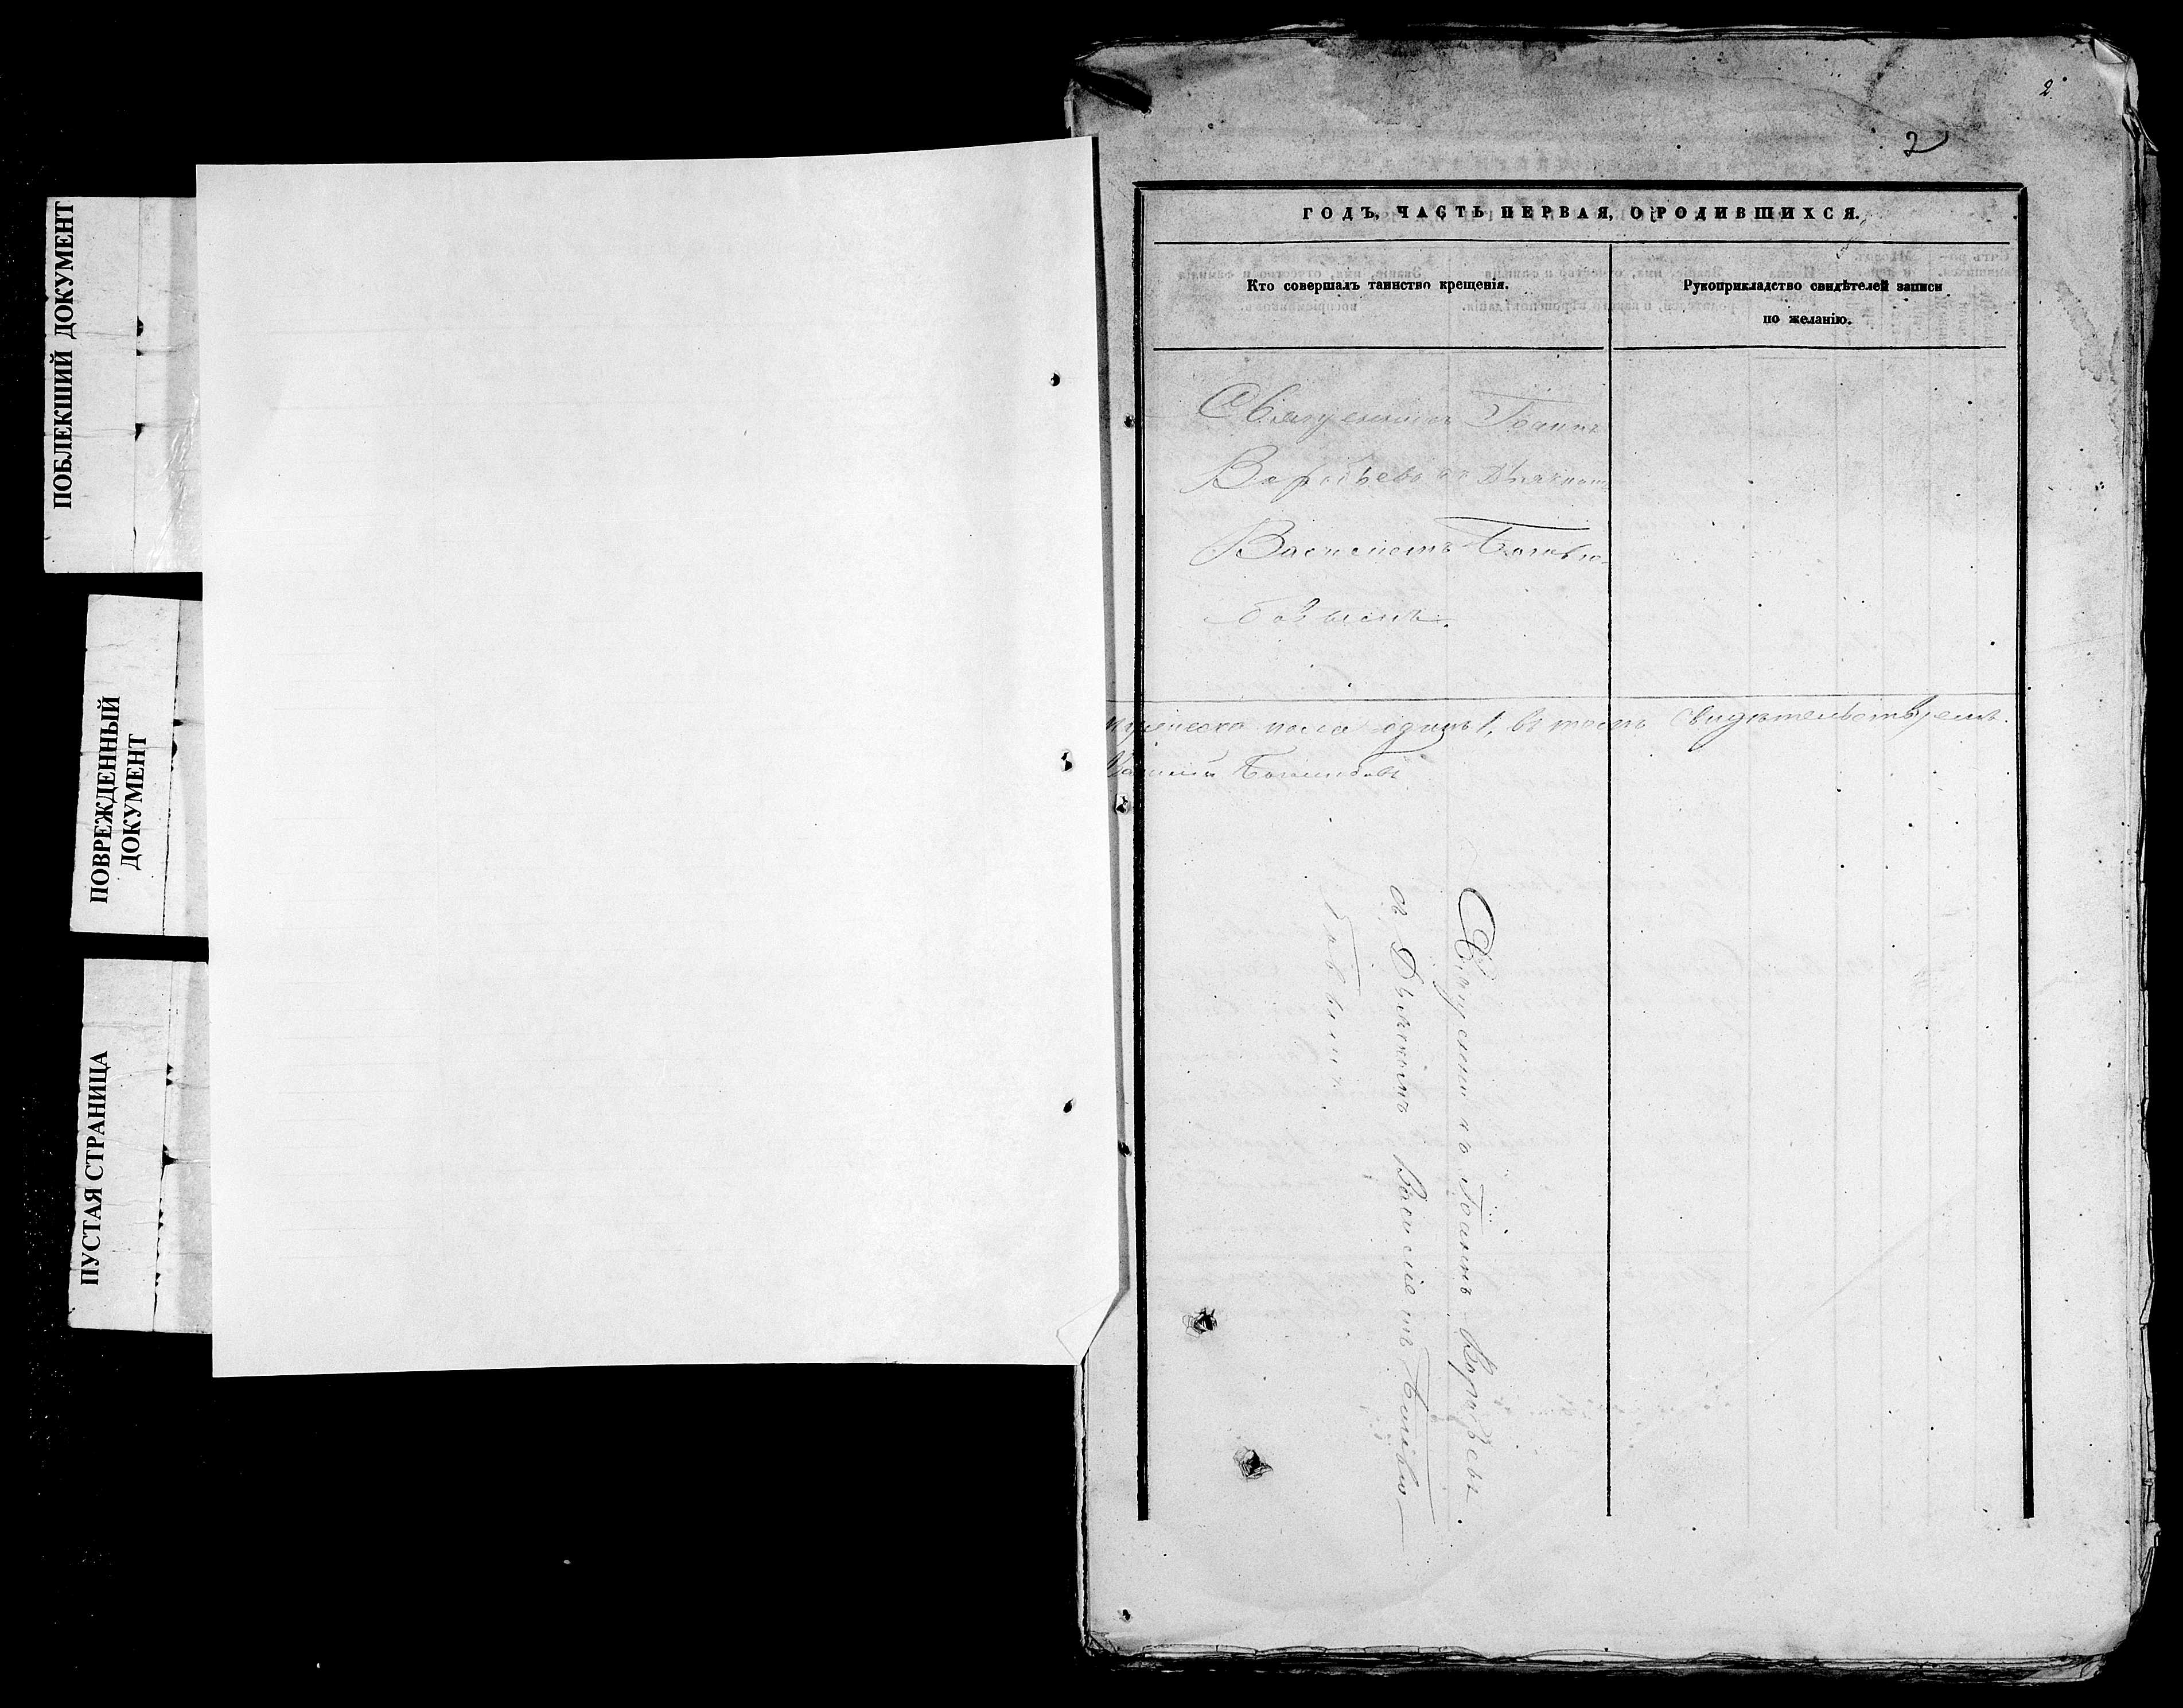 ПОБЛЕКШИЙ ДОКУМЕНТ
ПОВРЕЖДЕННЫЙ
ДОКУМЕНТ
ПУСТАЯ СТРАНИЦА
2.
2
ГОДЪ, ЧАСТЬ ПЕРВАЯ, О РОДИВШИХСЯ.
Кто совершалъ таинство крещенія.
Рукоприкладство свидѣтелей записи
по желанію.
Священникъ Іоаннъ
Воробьевъ съ Дьячкомъ
Василіемъ
бовымъ.
мужеска пола одинъ 1, въ томъ свидѣтельствуемъ.
Священникъ Іоаннъ Воробьевъ
съ Дьячкомъ Василіемъ
бовымъ.